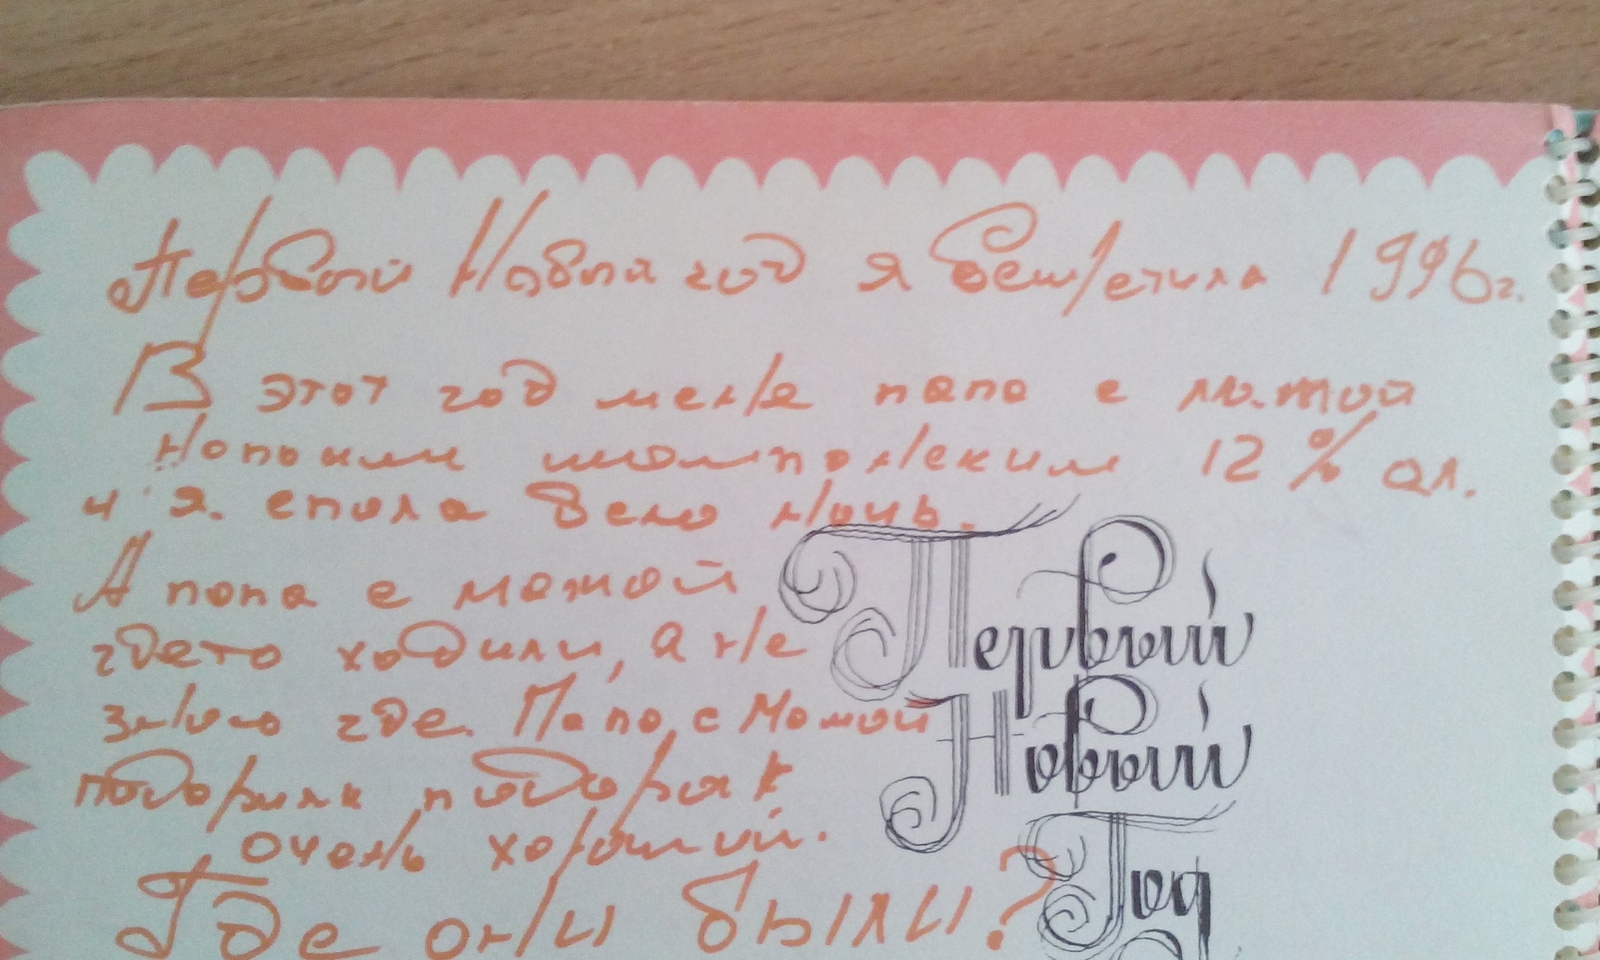 Первый Новый год я встретила 1996г.
В этот год меня папа с мамой
напоили шампанским 12% ал.
и я спала всю ночь.
А папа с мамой
гдето ходили, а не
знаю где. Папа с Мамой
подарили подарок
очень хороший.
Где они были?
Первый
Новый
Год